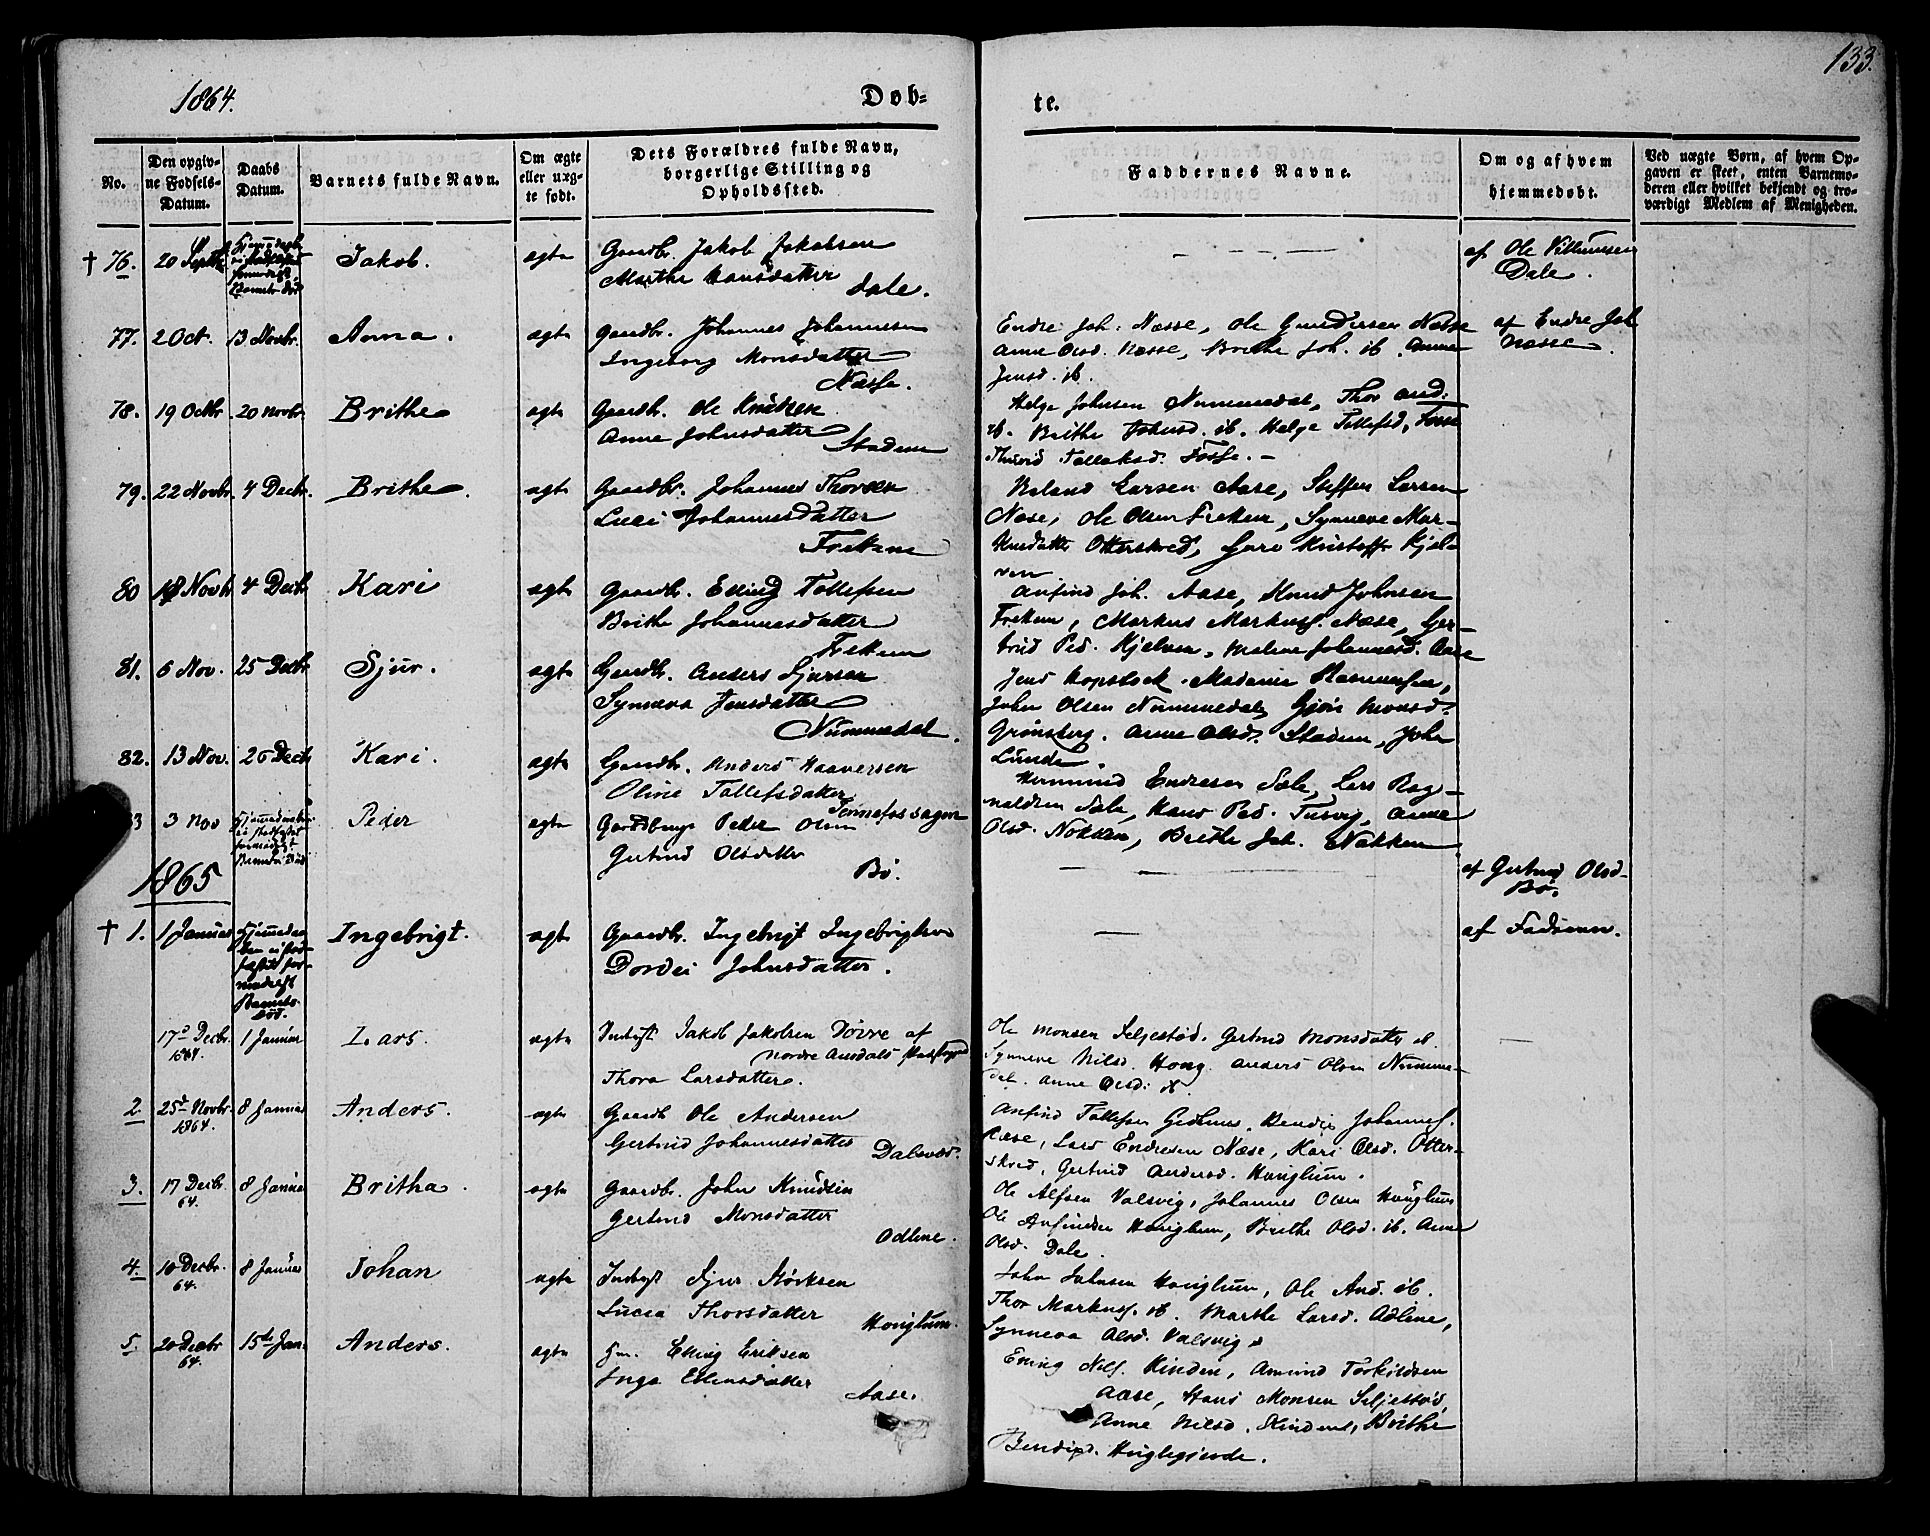 133.
1864.
Døb-
te.
No.
Den opgiv-
ne Fødsels-
Datum.
Daabs
Datum.
Barnets fulde Navn.
Om ægte
eller uæg-
te født.
Dets Forældres fulde Navn,
borgerlige Stilling og
Opholdssted.
Faddernes Navne.
Om og af hvem
hjemmedøbt.
Ved uægte Børn, af hvem Op-
gaven er skeet, enten Barnemo-
deren eller hvilket bekjendt og tro-
værdigt Medlem af Menigheden.
† 76. 20 Septbr Jakob. ægte Gaardbr. Jakob Jakobsen
Marthe Hansdatter
Dale.
af Ole Villumsen
Dale.
77. 2 Oct. 13 Novbr. Anna. ægte Gaardbr. Johannes Johannesen
Ingeborg Monsdatter
Næsse.
Endre Joh. Næsse, Ole Gundersen Næsse
Anne Olsd. Næsse, Brithe Joh. ib. Anne
Jensd. ib.
af Endre Joh
Næsse.
78. 19 Octbr 20 Novbr. Brithe ægte Gaardb. Ole Knudsen
Anne Johnsdatter
Stadem
Helge Johnsen Nummedal, Thor And.
ib. Brithe Johnsd. ib. Helge Tollefsd. Fosse
Fosse.
79. 22 Novbr. 4 Decbr. Brithe. ægte Gaardbr. Johannes Thorsen
Luci Johannesdatter
Frekem
Larsen Aase, Steffen Larsen
Næse, Ole Olsen Frekem, Synneve Mar-
kusdatter Otterskred,
80 18 Novb 4 Decbr Kari ægte Gaardbr. Elling Tollefsen
Brithe Johannesdatter
Frekem
Anfind Joh. Aase, Knud Johnsen
Frekem, Markus Markusf. Næse, Ger-
trud Ped. Hjelven, Malene Johannesd. Aase
81. 6 Nov. 25 Decbr Sjur. ægte Gaardbr. Anders Sjursen
Synneva Jensdatter
Nummedal.
Jens Hopstock. Madame Rasmussen,
John Olsen Nummedal, Gjøri Monsd.
Grønsberg. Anne Olsd. Stadem, John
Lunde.
82. 13 Nov. 26 Decb Kari. ægte Gaardbr. Anders Haaversen
Oline Tollefsdatter
Tennefossagen
Hermund Endresen Sæle, Lars Rag-
naldsen Sæle, Hans Ped. Tusvig, Anne
Olsd. Nokken, Brithe Joh. Nokken
83 3 Nov Peder ægte Gaardbruger Peder Olsen
Gertrud Olsdatter
Bø.
af Gertrud Olsd-
Bø.
1865
† 1. 1 Januar Ingebrigt. ægte Gaardbr. Ingebrigt Ingebrigtsen
Dordei Johnsdatter.
af Faderen.
17de Decbr. 1 Januar Lars. ægte Indsyt Jakob Jakobsen af
1864.
Thora Larsdatter.
Ole Monsen Seljestød. Gertrud Monsdatter ib.
Synneve Nilsd. Houg. Anders Olsen Numme-
dal. Anne Olsd. ib
2. 25de Novbr. 8 Januar Anders. ægte Gaardb Ole Andersen
1864.
Gertrud Johannesdatter
Dalsvæd.
Anfind Tollefsen Bendix Johannesf.
Næse, Lars Endresen Næse, Kari Olsd. Otter-
skred, Gertrud Andersd. Houglum.
3. 17 Decbr. 8 Januar Britha. ægte Gaardbr. John Knudsen
64.
Gertrud Monsdatter
Odline.
Ole Alfsen Valsvig, Johannes Olsen Houglum
Ole Anfindsen Houglum, Brithe Olsd. ib. Anne
Olsd. Dale.
4. 10 Decbr. 8 Januar Johan ægte Indsyt Sjur Størksen
64.
Lucia Thorsdatter
Houglum.
John Johnsen Houglum, Ole And. ib.
Thor Markusf. ib. Marthe Larsd. Odline,
Synneva Olsd. Valsvig.
5. 20 Decbr 15de Jan. Anders. ægte Hm. Elling Eriksen
64.
Inga Ellensdatter
Aase.
Elling Nilsf. Kinden, Amund Torkildsen
Aase, Hans Monsen Seljestød,
Anne Nilsd. Kinden, Brithe
Bendixd. Huglegjerde.